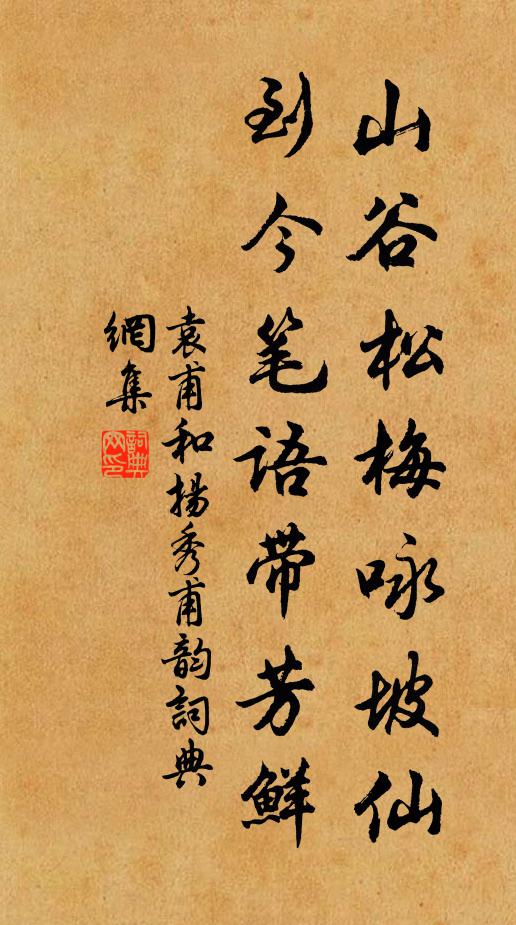 山谷松梅咏坡仙
到今笔语带芳鲜
袁甫和揚秀甫韵詞典
網集
詞典
网印